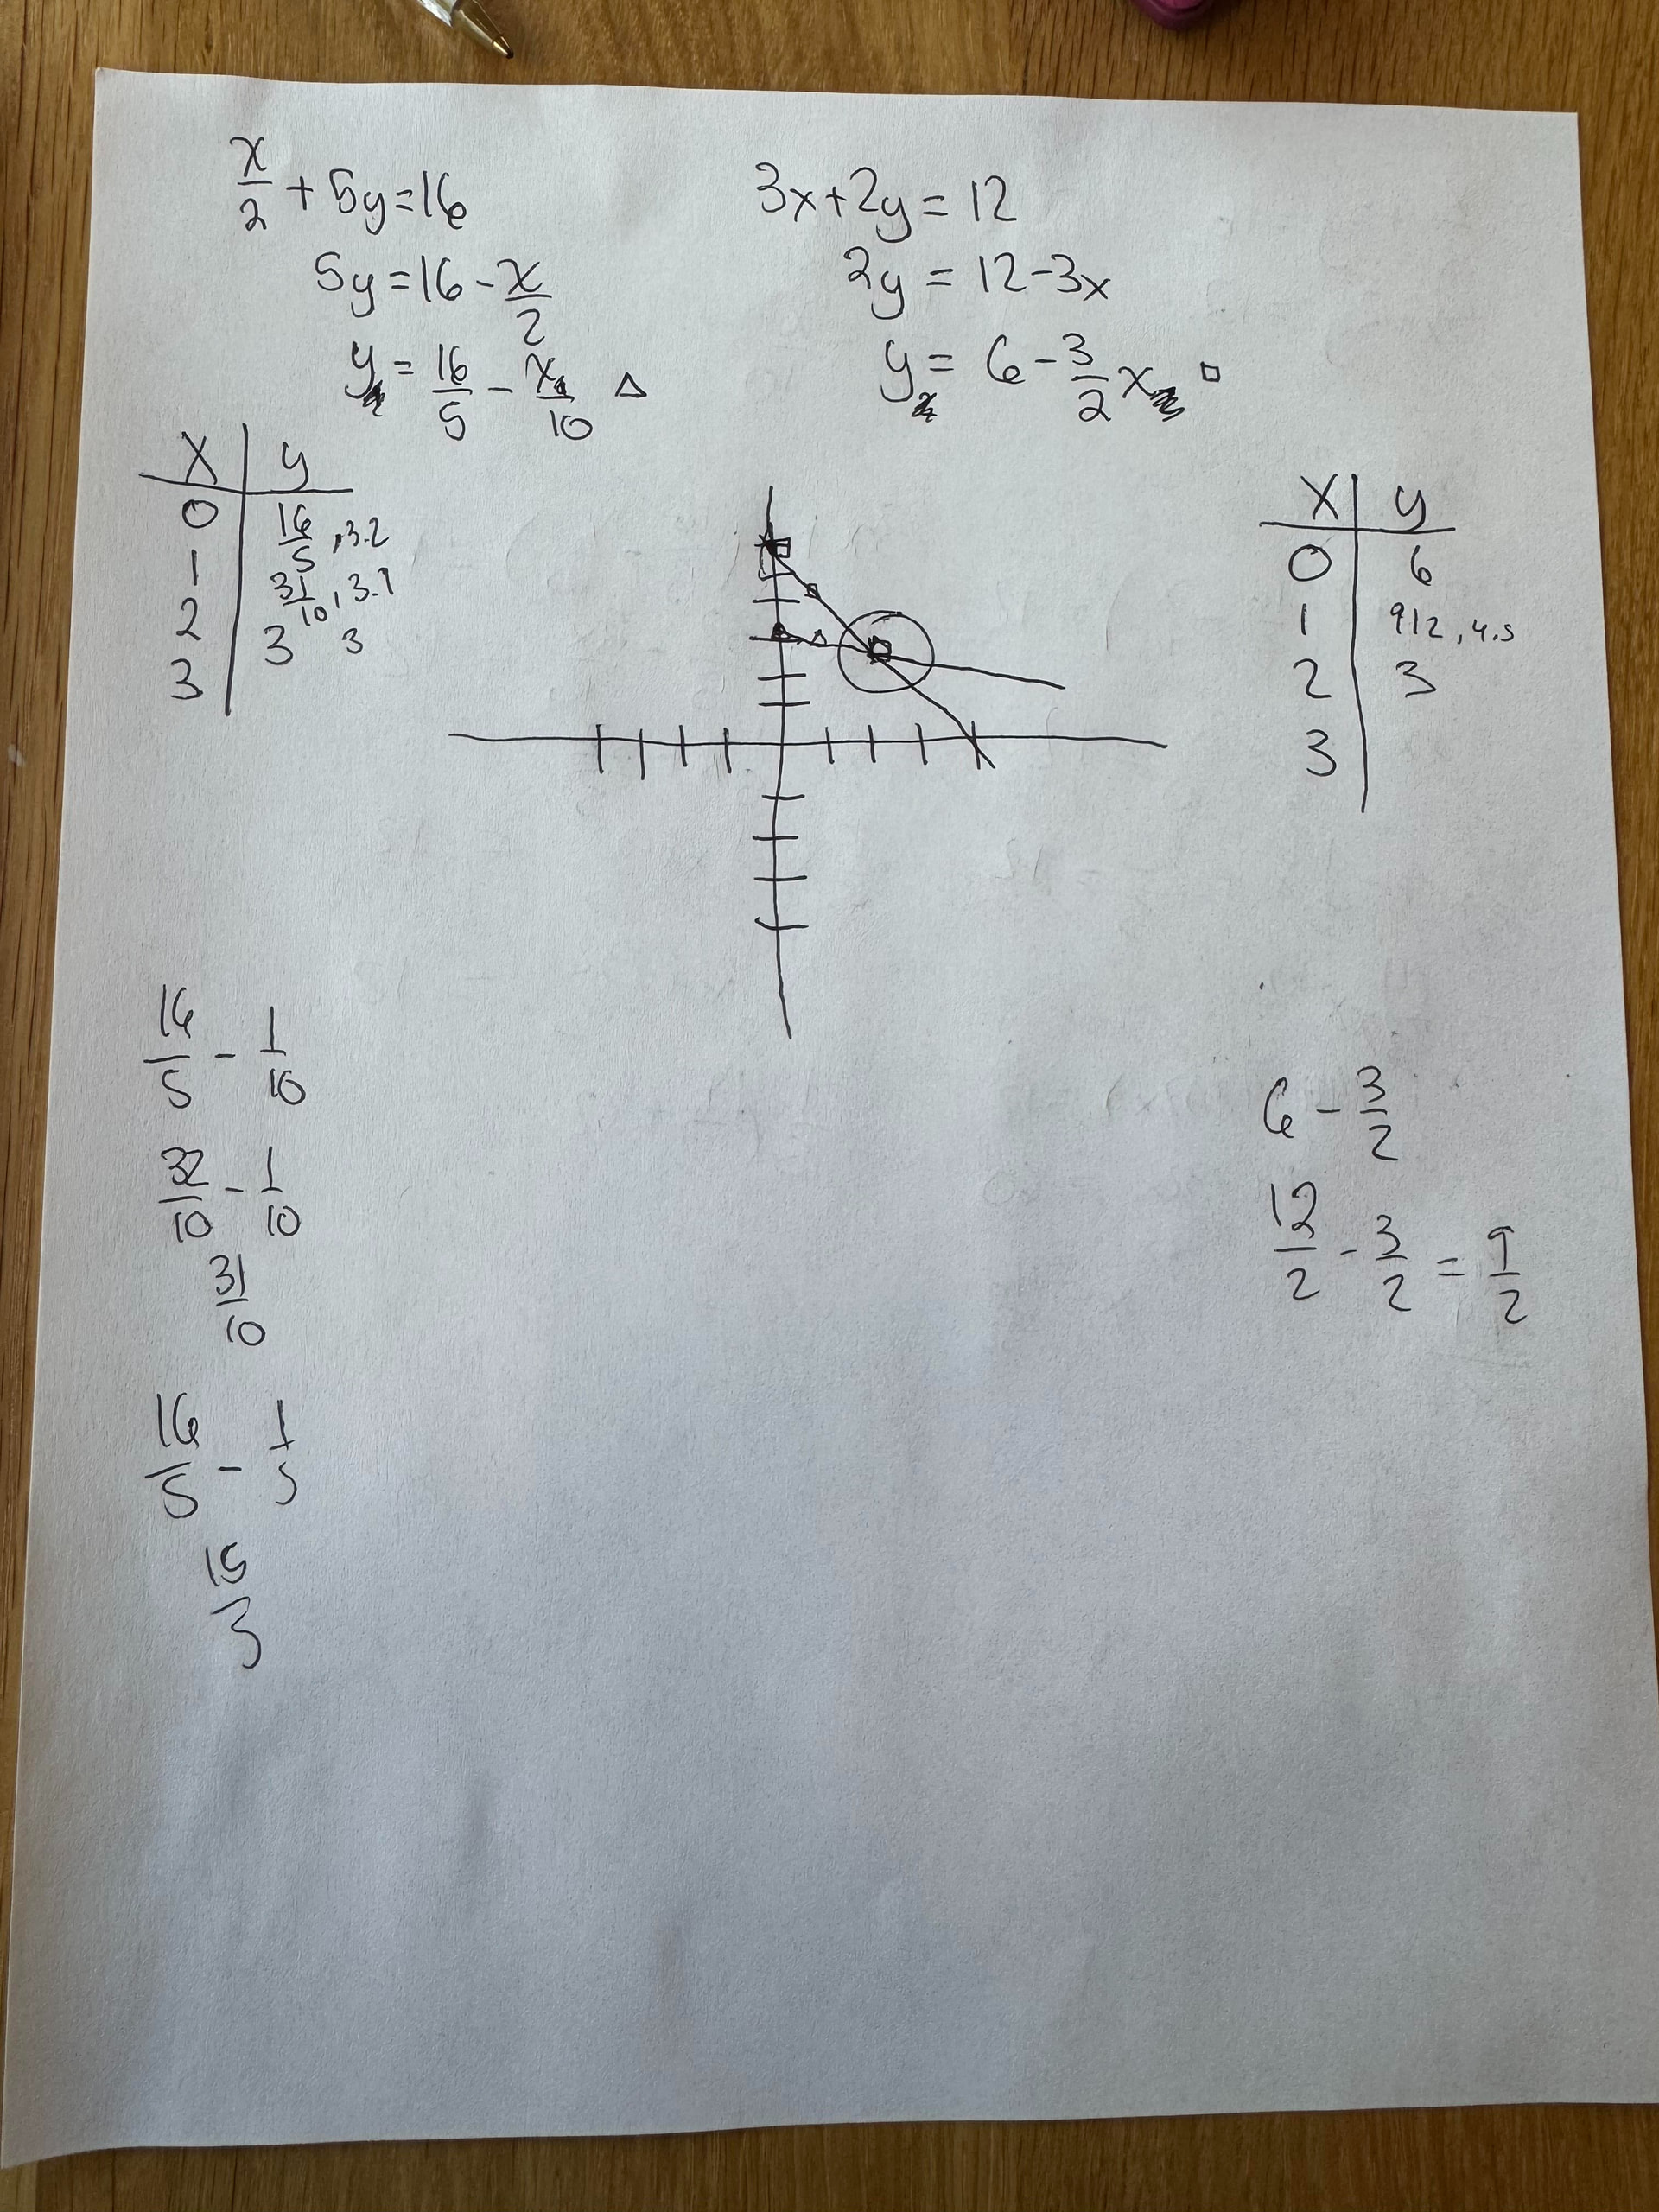 x/2 + 5y = 16
5y = 16 - x/2
y = 16/5 - x/10 △
3x + 2y = 12
2y = 12 - 3x
y = 6 - 3/2 x □
x | y
0 | 16/5, 3.2
1 | 31/10, 3.1
2 | 3 3
3 |
x | y
0 | 6
1 | 9/2, 4.5
2 | 3
3 |
16/5 - 1/10
32/10 - 1/10
31/10
16/5 - 1/5
6 - 3/2
12/2 - 3/2 = 9/2